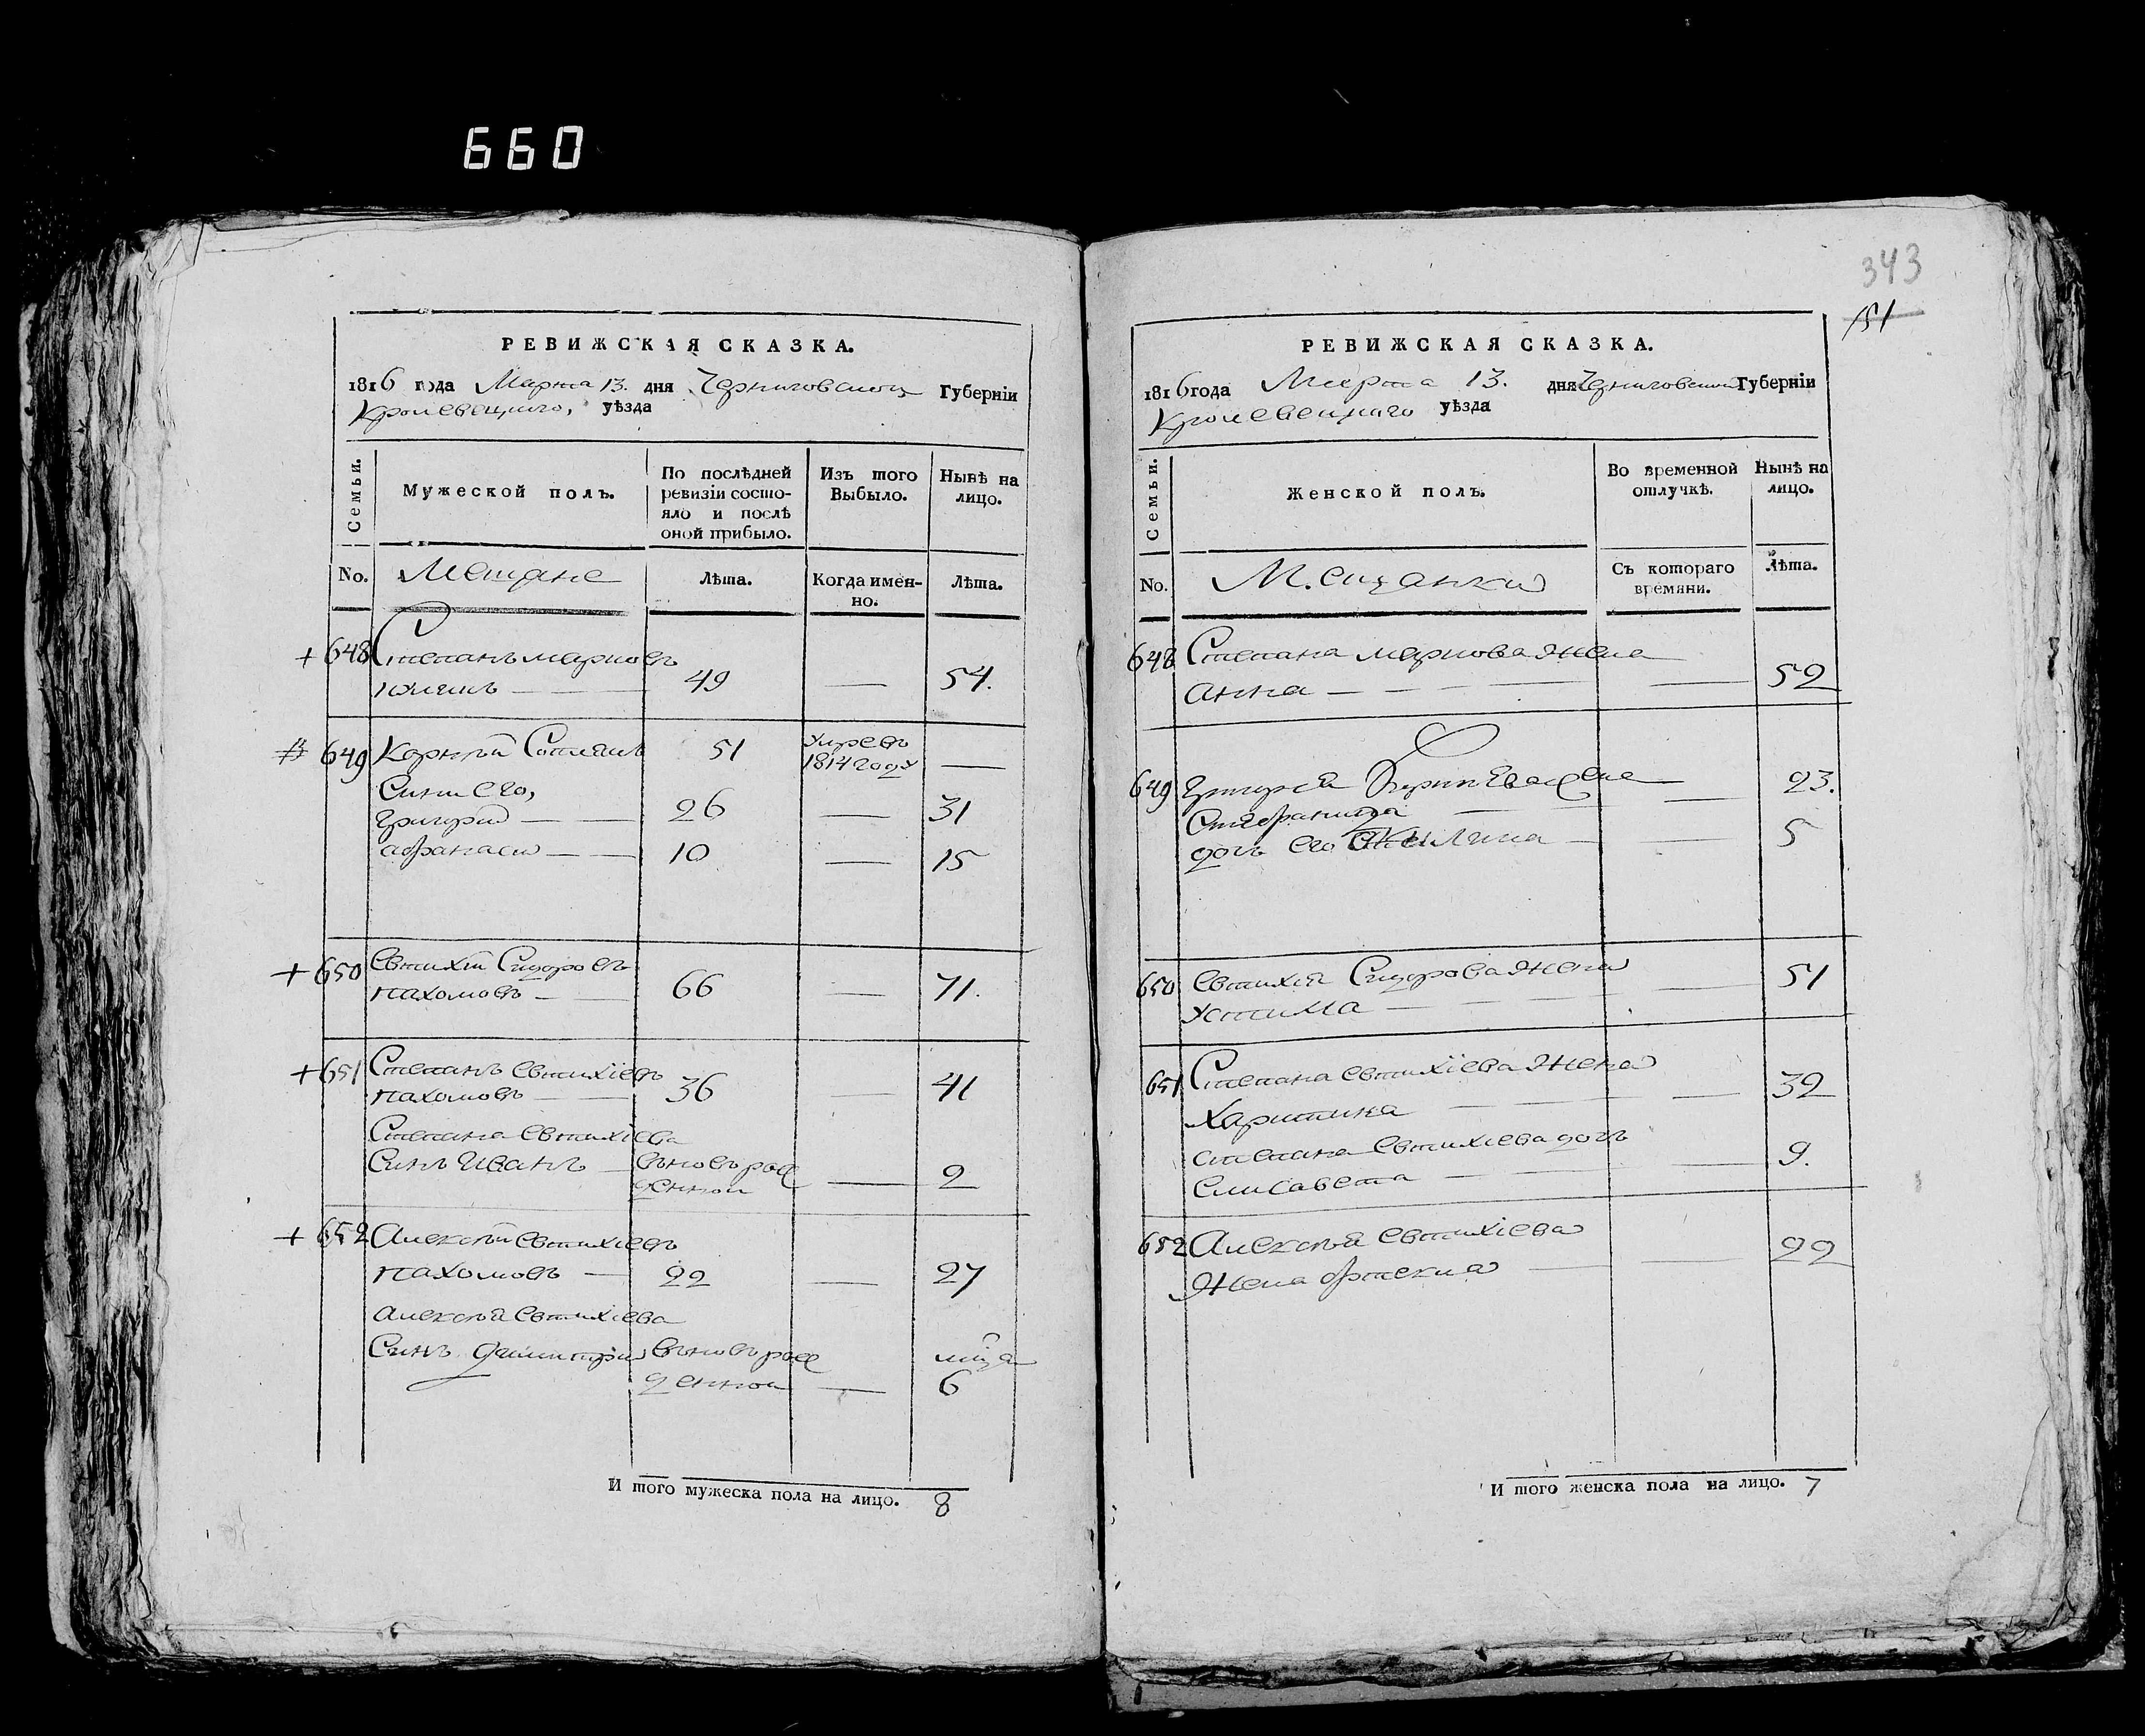 660
РЕВИЖСКАЯ СКАЗКА.
1816 года Марта 13. дня Черниговской Губерніи
Кролевецкого, уѣзда
Семьи.
Мужеской полъ.
По послѣдней ревизіи состояло и послѣ оной прибыло.
Изъ того Выбыло.
Нынѣ на лицо.
No. Мещане
Лѣта.
Когда именно.
Лѣта.
+ 648 Степанъ марковъ
49 — 54.
649 Корнѣй 51 умре въ
1814 году —
Сини его,
Григорий — 26 — 31
афанасий — 10 — 15
+ 650 Евтихій Сидоровъ
пахомовъ — 66 — 71.
+ 651 Степанъ евтихіевъ
пахомовъ — 36 — 41
Степана Евтихіева
Синъ Иванъ — вновь рож
денной — 2
+ 652 Алексѣй евтихіевъ
пахомовъ — 22 — 27
алексѣя Евтихіева
Синъ димитрий вновь рож
денной — 6
И того мужеска пола на лицо. 8
343
151
РЕВИЖСКАЯ СКАЗКА.
1816 года Марта 13. дня Черниговской Губерніи
Кролевецкого уѣзда
Семьи.
Женской полъ.
Во временной отлучкѣ.
Нынѣ на лицо.
No. Мещанки
Съ котораго времяни.
Лѣта.
648 Степана маркова жена
анна — 52
649 Григорія Корнѣева жена — 23.
Стефанида
дочь его — 5
650 Евтихія Сидорова жена — 51
устима —
651 Степана евтихіева жена
Харитина — 32
степана Евтихіева дочь
Елисавета — 9.
652 Алексѣя евтихіева
Жена фтекла — 22
И того женска пола на лицо. 7